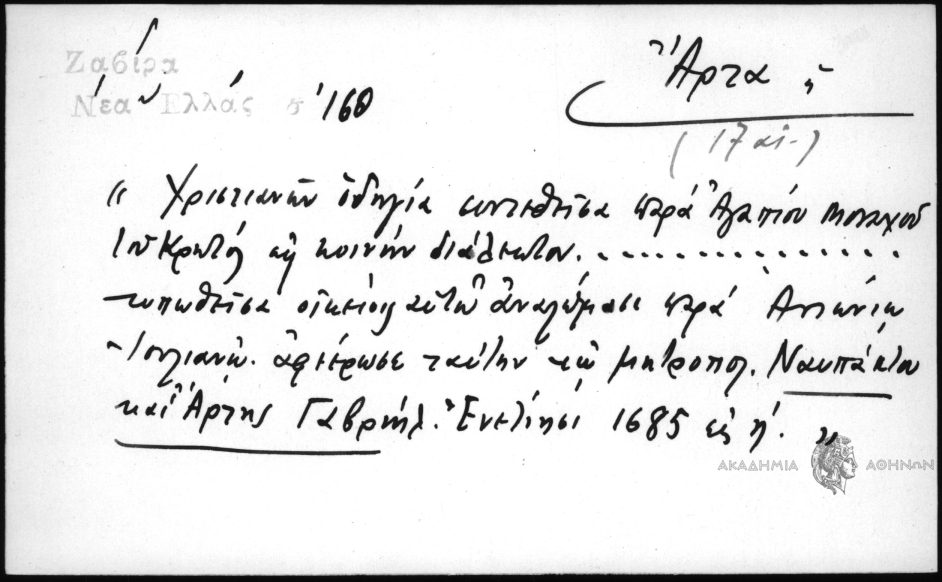 Ζαβίρα
Νέα Ἑλλάς σ 160
Ἄρτα ἡ
(17 αἰ.)
« Χριστιανῶν ὁδηγία συντεθεῖσα παρά Ἀγαπίου Μοναχοῦ
τοῦ Κρητός εἰς κοινήν διάλεκτον. . . . . . . . . . . . . . . . . . . .
τυπωθεῖσα οἰκείοις αὐτοῦ ἀναλώμασι παρά Ἀντωνίῳ
Ἰουλιανῷ. ἀφιέρωσε ταύτην τῷ μητροπολ. Ναυπάκτου
καί Ἄρτης Γαβριήλ. Ἐνετίησι 1685 εἰς ή. »
ΑΚΑΔΗΜΙΑ ΑΘΗΝΩΝ